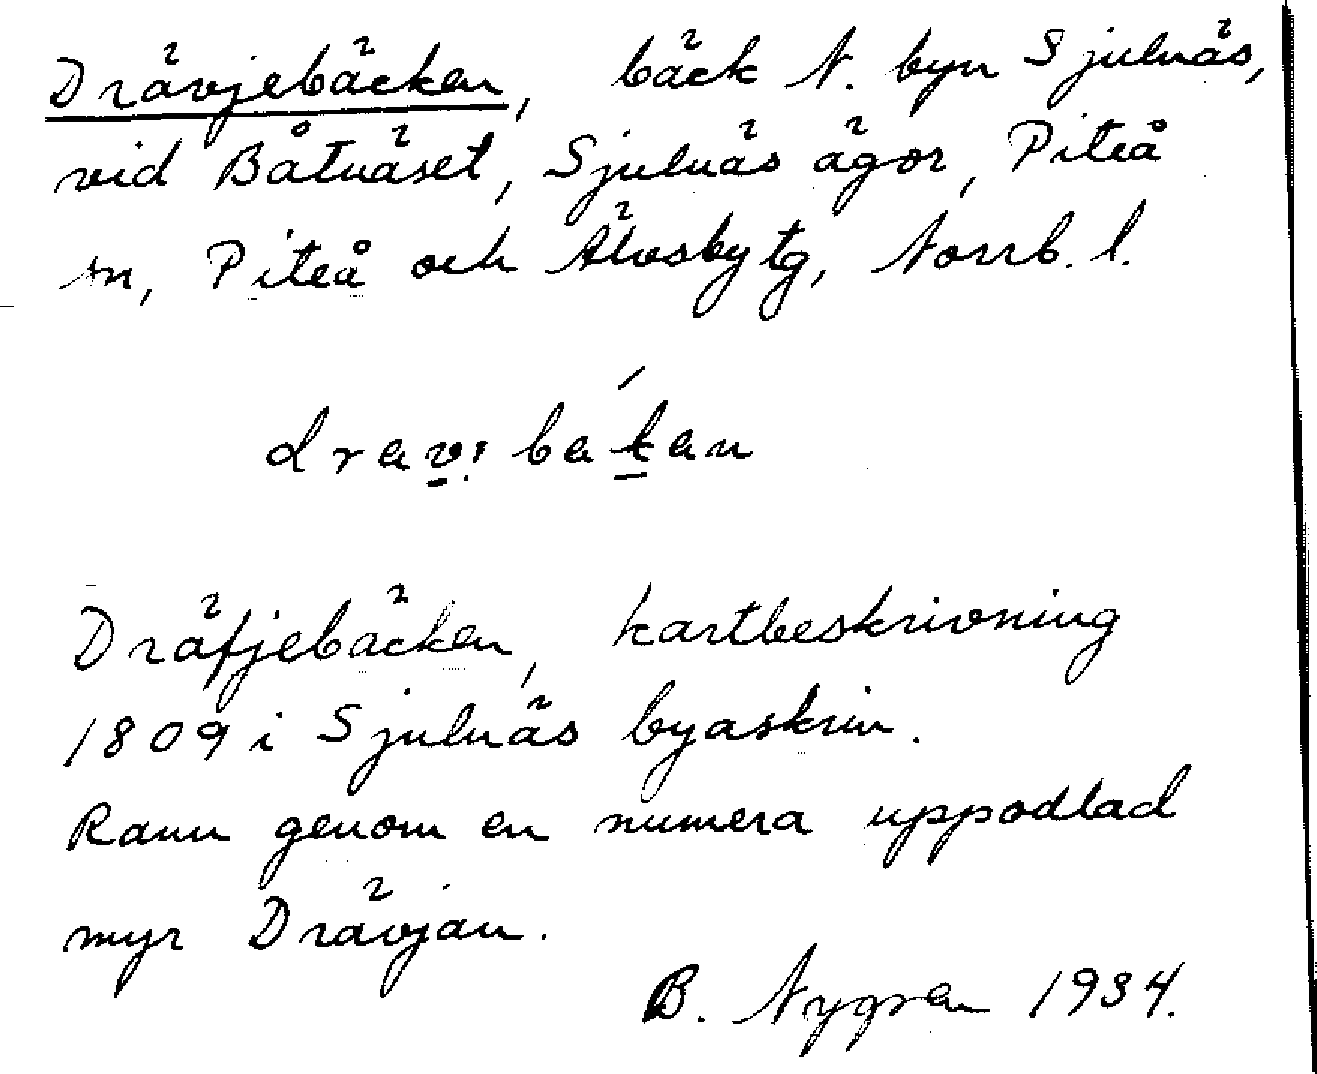 Drävjebäcken, bäck N. byn Sjulnäs,
vid Båtnäset, Sjulnäs ägor, Piteå
sn, Piteå och Älvsby tg, Norrb. l.
Dräfjebäcken, kartbeskrivning
1809 i Sjulnäs byaskrin.
Rann genom en numera uppodlad
myr Drävjan.
B. Nygren 1934.